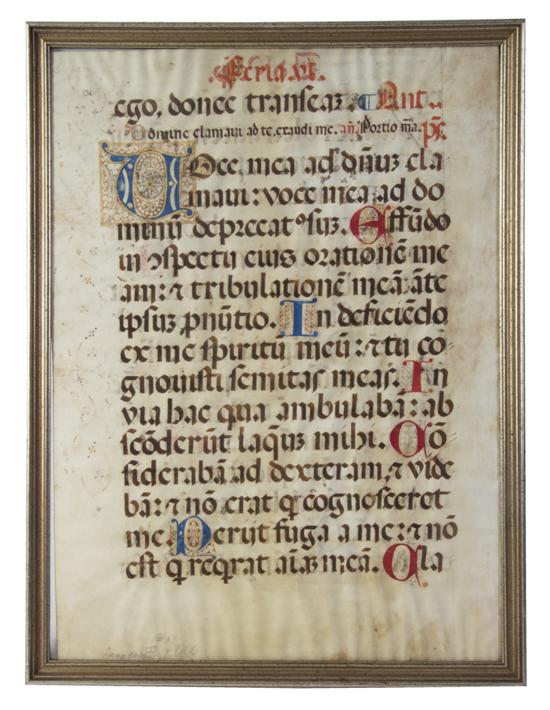 .Feria.vi.
ego, donec transeaʒ. Ant.
Domine clamaui ad te, exaudi me. añ. Portio m̃a. p̃s.
VOce mea ad dñuʒ cla
maui: voce mea ad do
minū deprecatꝰ suʒ. Effūdo
in ↄspectu eius orationē me
am: ⁊ tribulationē meā āte
ipsuʒ pnūtio. In deficiēdo
ex me spiritū meū: ⁊ tu co
gnouisti semitas meas. In
via hac qua ambulabā: ab
scōderūt laq̄uʒ mihi. Cō
siderabā ad dexteram, ⁊ vide
bā: ⁊ nō erat q cognosceret
me. Perijt fuga a me: ⁊ nō
est q reqrat aīaʒ meā. Cla